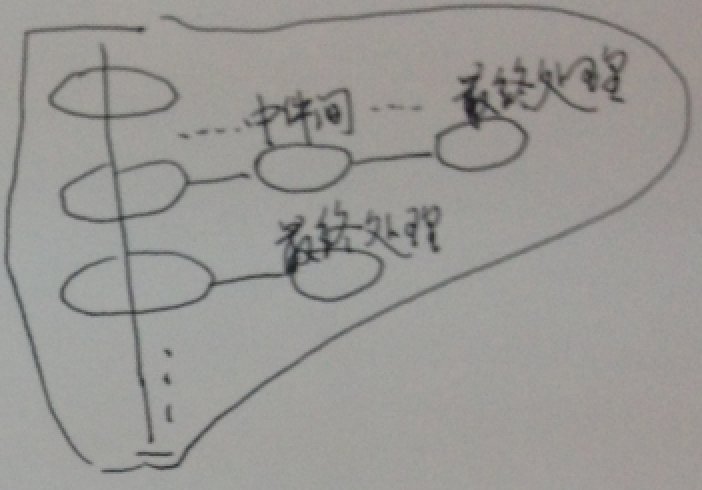 中件间
最终处理
最终处理